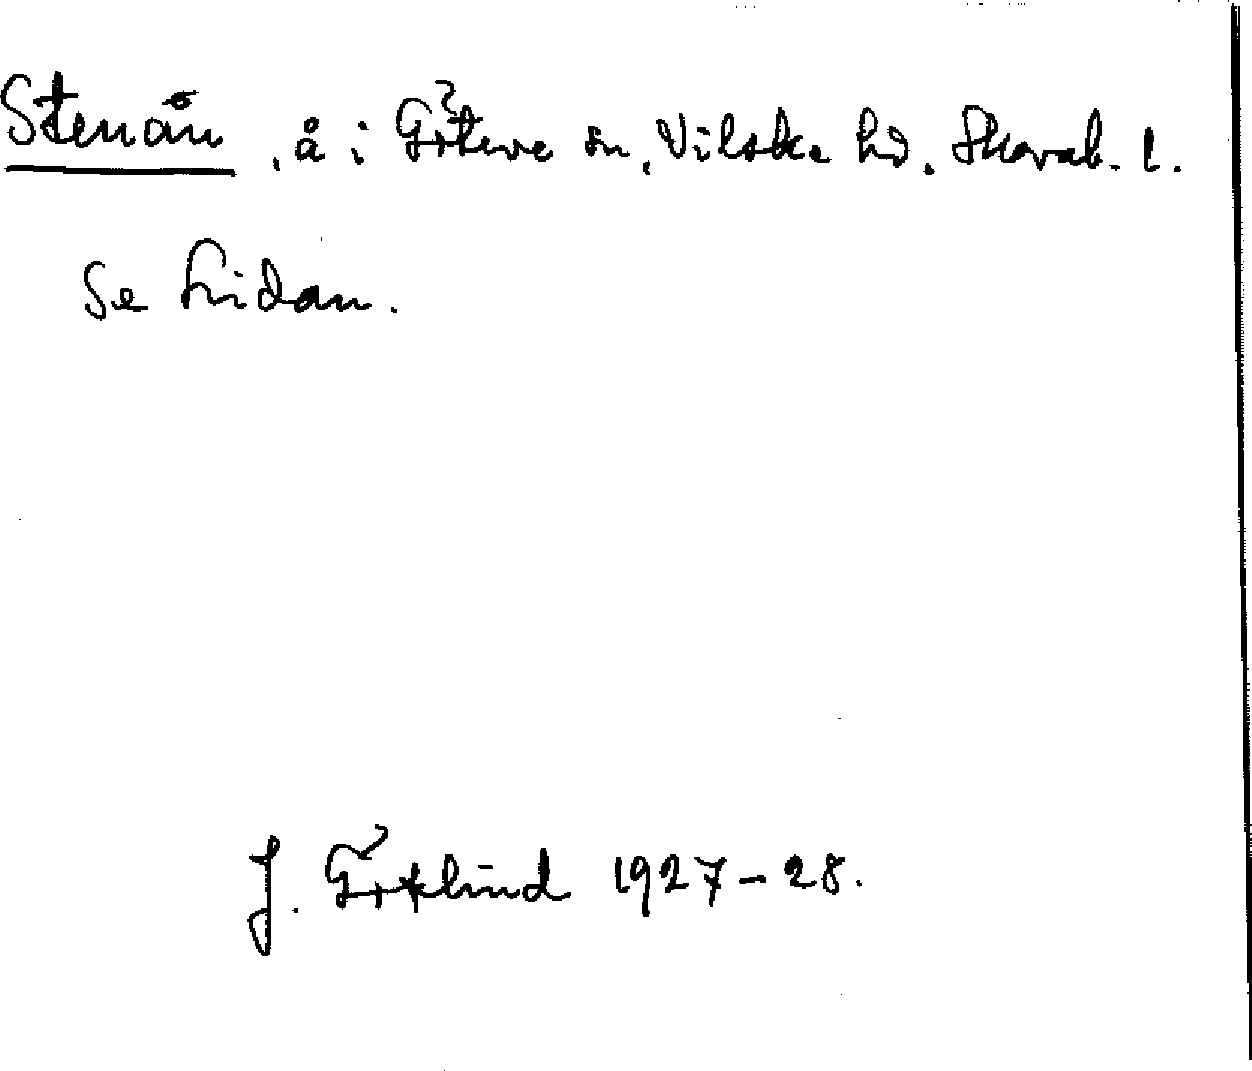 Stenån, å i Göteve sn, Vilske hd. Skarab. l.
Se Lidan.
J. Götlind 1927-28.